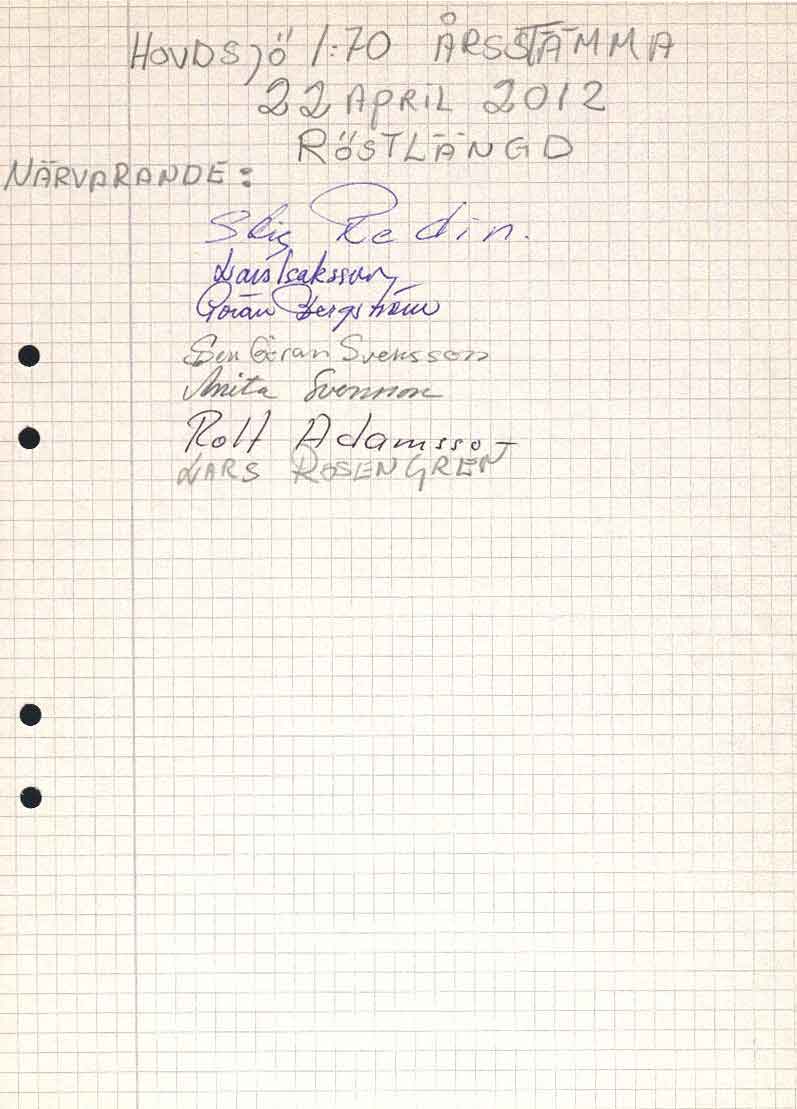 HOVDSJÖ 1:70 ÅRSSTÄMMA
22 APRIL 2012
RÖSTLÄNGD
NÄRVARANDE:
Stig Redin.
Lars Isaksson
Göran Bergström
Sven Göran Svensson
Anita Svensson
Rolf Adamsson
LARS ROSENGREN